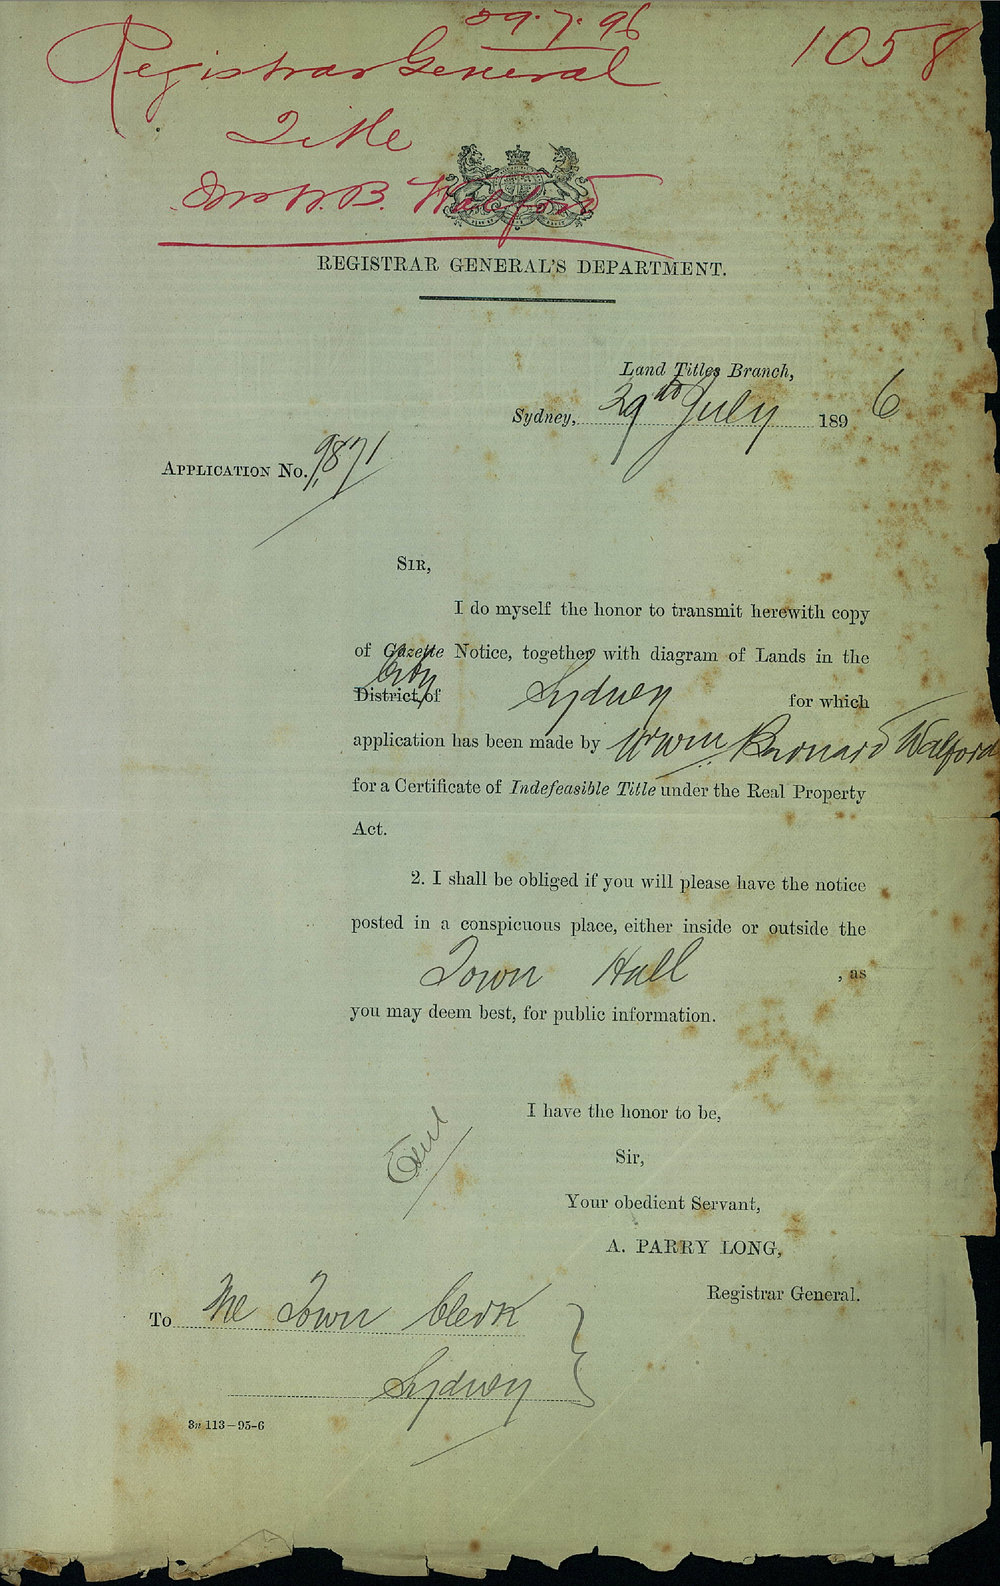 29.7.96
1058
Registrar General
Title
W. B. Walford
REGISTRAR GENERAL'S DEPARTMENT.
Land Titles Branch,
Sydney, 29th July 1896
APPLICATION No. 9871
SIR,
I do myself the honor to transmit herewith copy
of Gazette Notice, together with diagram of Lands in the
City
District of Sydney for which
application has been made by Barnard Walford
for a Certificate of Indefeasible Title under the Real Property
Act.
2. I shall be obliged if you will please have the notice
posted in a conspicuous place, either inside or outside the
Town Hall , as
you may deem best, for public information.
I have the honor to be,
Sir,
Your obedient Servant,
A. PARRY LONG,
Registrar General.
To The Town Clerk
Sydney
3n 113—95-6